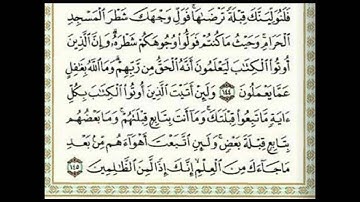 فَلَنُوَلِّيَنَّكَ قِبْلَةً تَرْضَىٰهَا ۚ فَوَلِّ وَجْهَكَ شَطْرَ ٱلْمَسْجِدِ
ٱلْحَرَامِ ۚ وَحَيْثُ مَا كُنتُمْ فَوَلُّوا۟ وُجُوهَكُمْ شَطْرَهُۥ ۗ وَإِنَّ ٱلَّذِينَ
أُوتُوا۟ ٱلْكِتَٰبَ لَيَعْلَمُونَ أَنَّهُ ٱلْحَقُّ مِن رَّبِّهِمْ ۗ وَمَا ٱللَّهُ بِغَٰفِلٍ
عَمَّا يَعْمَلُونَ ١٤٤ وَلَئِنْ أَتَيْتَ ٱلَّذِينَ أُوتُوا۟ ٱلْكِتَٰبَ بِكُلِّ
ءَايَةٍ مَّا تَبِعُوا۟ قِبْلَتَكَ ۚ وَمَآ أَنتَ بِتَابِعٍ قِبْلَتَهُمْ ۚ وَمَا بَعْضُهُم
بِتَابِعٍ قِبْلَةَ بَعْضٍ ۚ وَلَئِنِ ٱتَّبَعْتَ أَهْوَآءَهُم مِّنۢ بَعْدِ
مَا جَآءَكَ مِنَ ٱلْعِلْمِ ۙ إِنَّكَ إِذًا لَّمِنَ ٱلظَّٰلِمِينَ ١٤٥